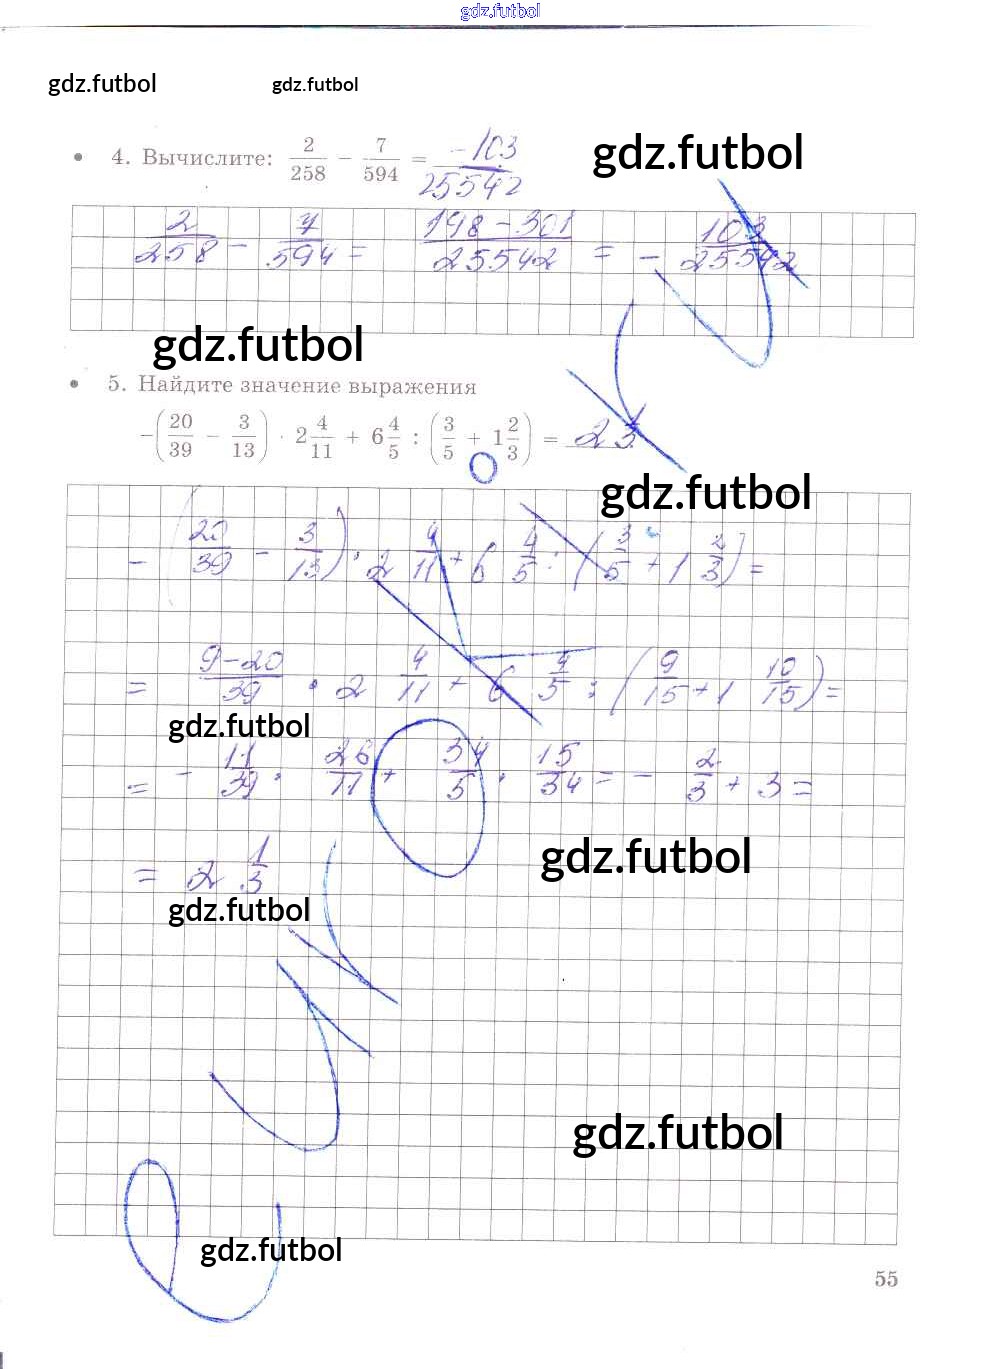 gdz.futbol
gdz.futbol gdz.futbol
4. Вычислите: 2/258 − 7/594 = −103/25542
gdz.futbol
2/258 − 7/594 = 198−301/25542 = − 103/25542
gdz.futbol
5. Найдите значение выражения
−(20/39 − 3/13) · 2 4/11 + 6 4/5 : (3/5 + 1 2/3) = 2 1/3
gdz.futbol
− (20/39 − 3/13) · 2 4/11 + 6 4/5 : (3/5 + 1 2/3) =
= 9−20/39 · 2 4/11 + 6 4/5 : (9/15 + 1 10/15) =
gdz.futbol
= − 11/39 · 26/11 + 34/5 · 15/34 = − 2/3 + 3 =
= 2 1/3
gdz.futbol
gdz.futbol
gdz.futbol
gdz.futbol
55